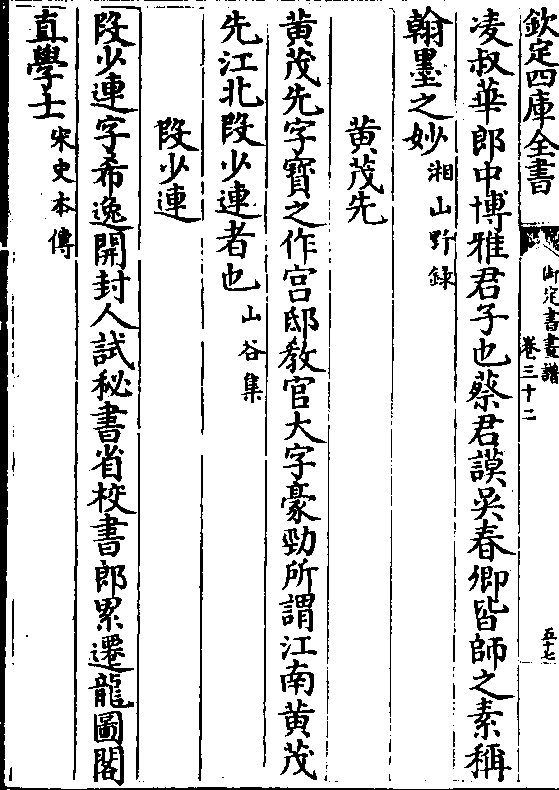 欽定四庫全書
御定書畫譜
卷三十二
五十七
凌叔華郎中博雅君子也蔡君謨吳春卿皆師之素稱
翰墨之妙湘山野錄
黄茂先
黄茂先字寶之作宫邸教官大字豪勁所謂江南黄茂
先江北段少連者也山谷集
段少連
段少連字希逸開封人試秘書省校書郎累遷龍圖閣
直學士宋史本傳